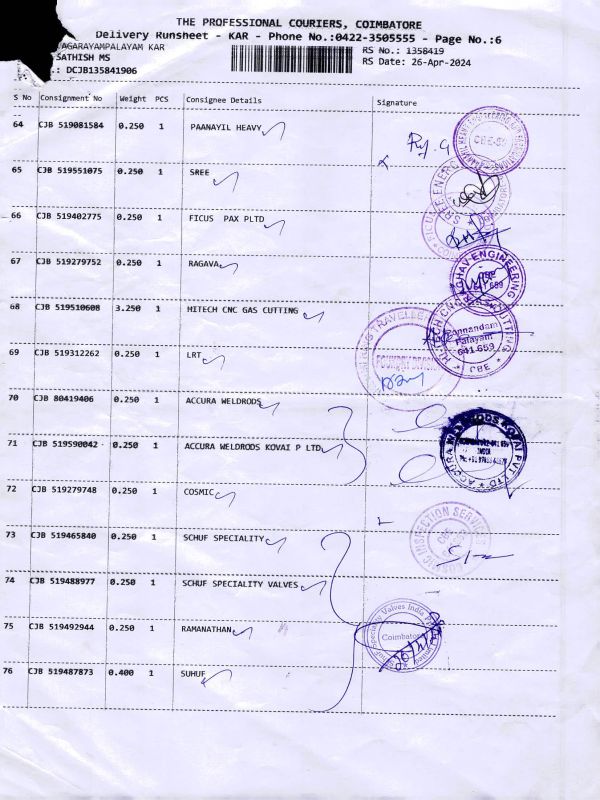 THE PROFESSIONAL COURIERS, COIMBATORE
Delivery Runsheet - KAR - Phone No.:0422-3505555 - Page No.:6
AGARAYAMPALAYAM KAR
RS No.: 1358419
SATHISH MS
RS Date: 26-Apr-2024
.: DCJB135841906
S No Consignment No Weight PCS Consignee Details Signature
64 CJB 519081584 0.250 1 PAANAYIL HEAVY
65 CJB 519551075 0.250 1 SREE
66 CJB 519402775 0.250 1 FICUS PAX PLTD
67 CJB 519279752 0.250 1 RAGAVA
68 CJB 519510608 3.250 1 HITECH CNC GAS CUTTING
69 CJB 519312262 0.250 1 LRT
70 CJB 80419406 0.250 1 ACCURA WELDRODS
71 CJB 519590042 0.250 1 ACCURA WELDRODS KOVAI P LTD
72 CJB 519279748 0.250 1 COSMIC
73 CJB 519465840 0.250 1 SCHUF SPECIALITY
74 CJB 519488977 0.250 1 SCHUF SPECIALITY VALVES
75 CJB 519492944 0.250 1 RAMANATHAN
76 CJB 519487873 0.400 1 SUHUF
SREE ENER
RAGHAV ENGINEERING
HITECH CNC GAS CUTTING
Kannandam
Palayam
641 659
CBE
TRAVELLE
ACCURA WELDRODS KOVAI PVT LTD
INDIA
INSPECTION SERVICES
Speciality Valves India
Coimbatore